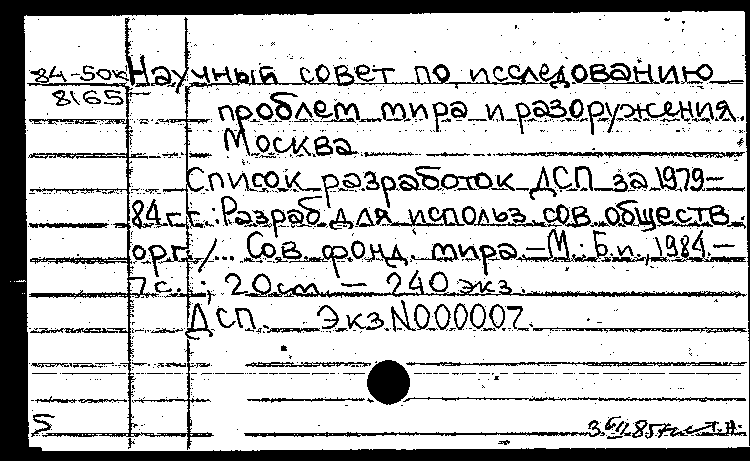 84-50к Научный совет по исследованию
8165 проблем мира и разоружения.
Москва
Список разработок ДСП за 1979-
84 г.г.: Разраб для использ. сов. обществ.
орг. /... Сов. фонд. мира.-М.: Б.и., 1984.-
7 с. ; 20 cm. - 240 экз.
ДСП. Экз N000007.
5